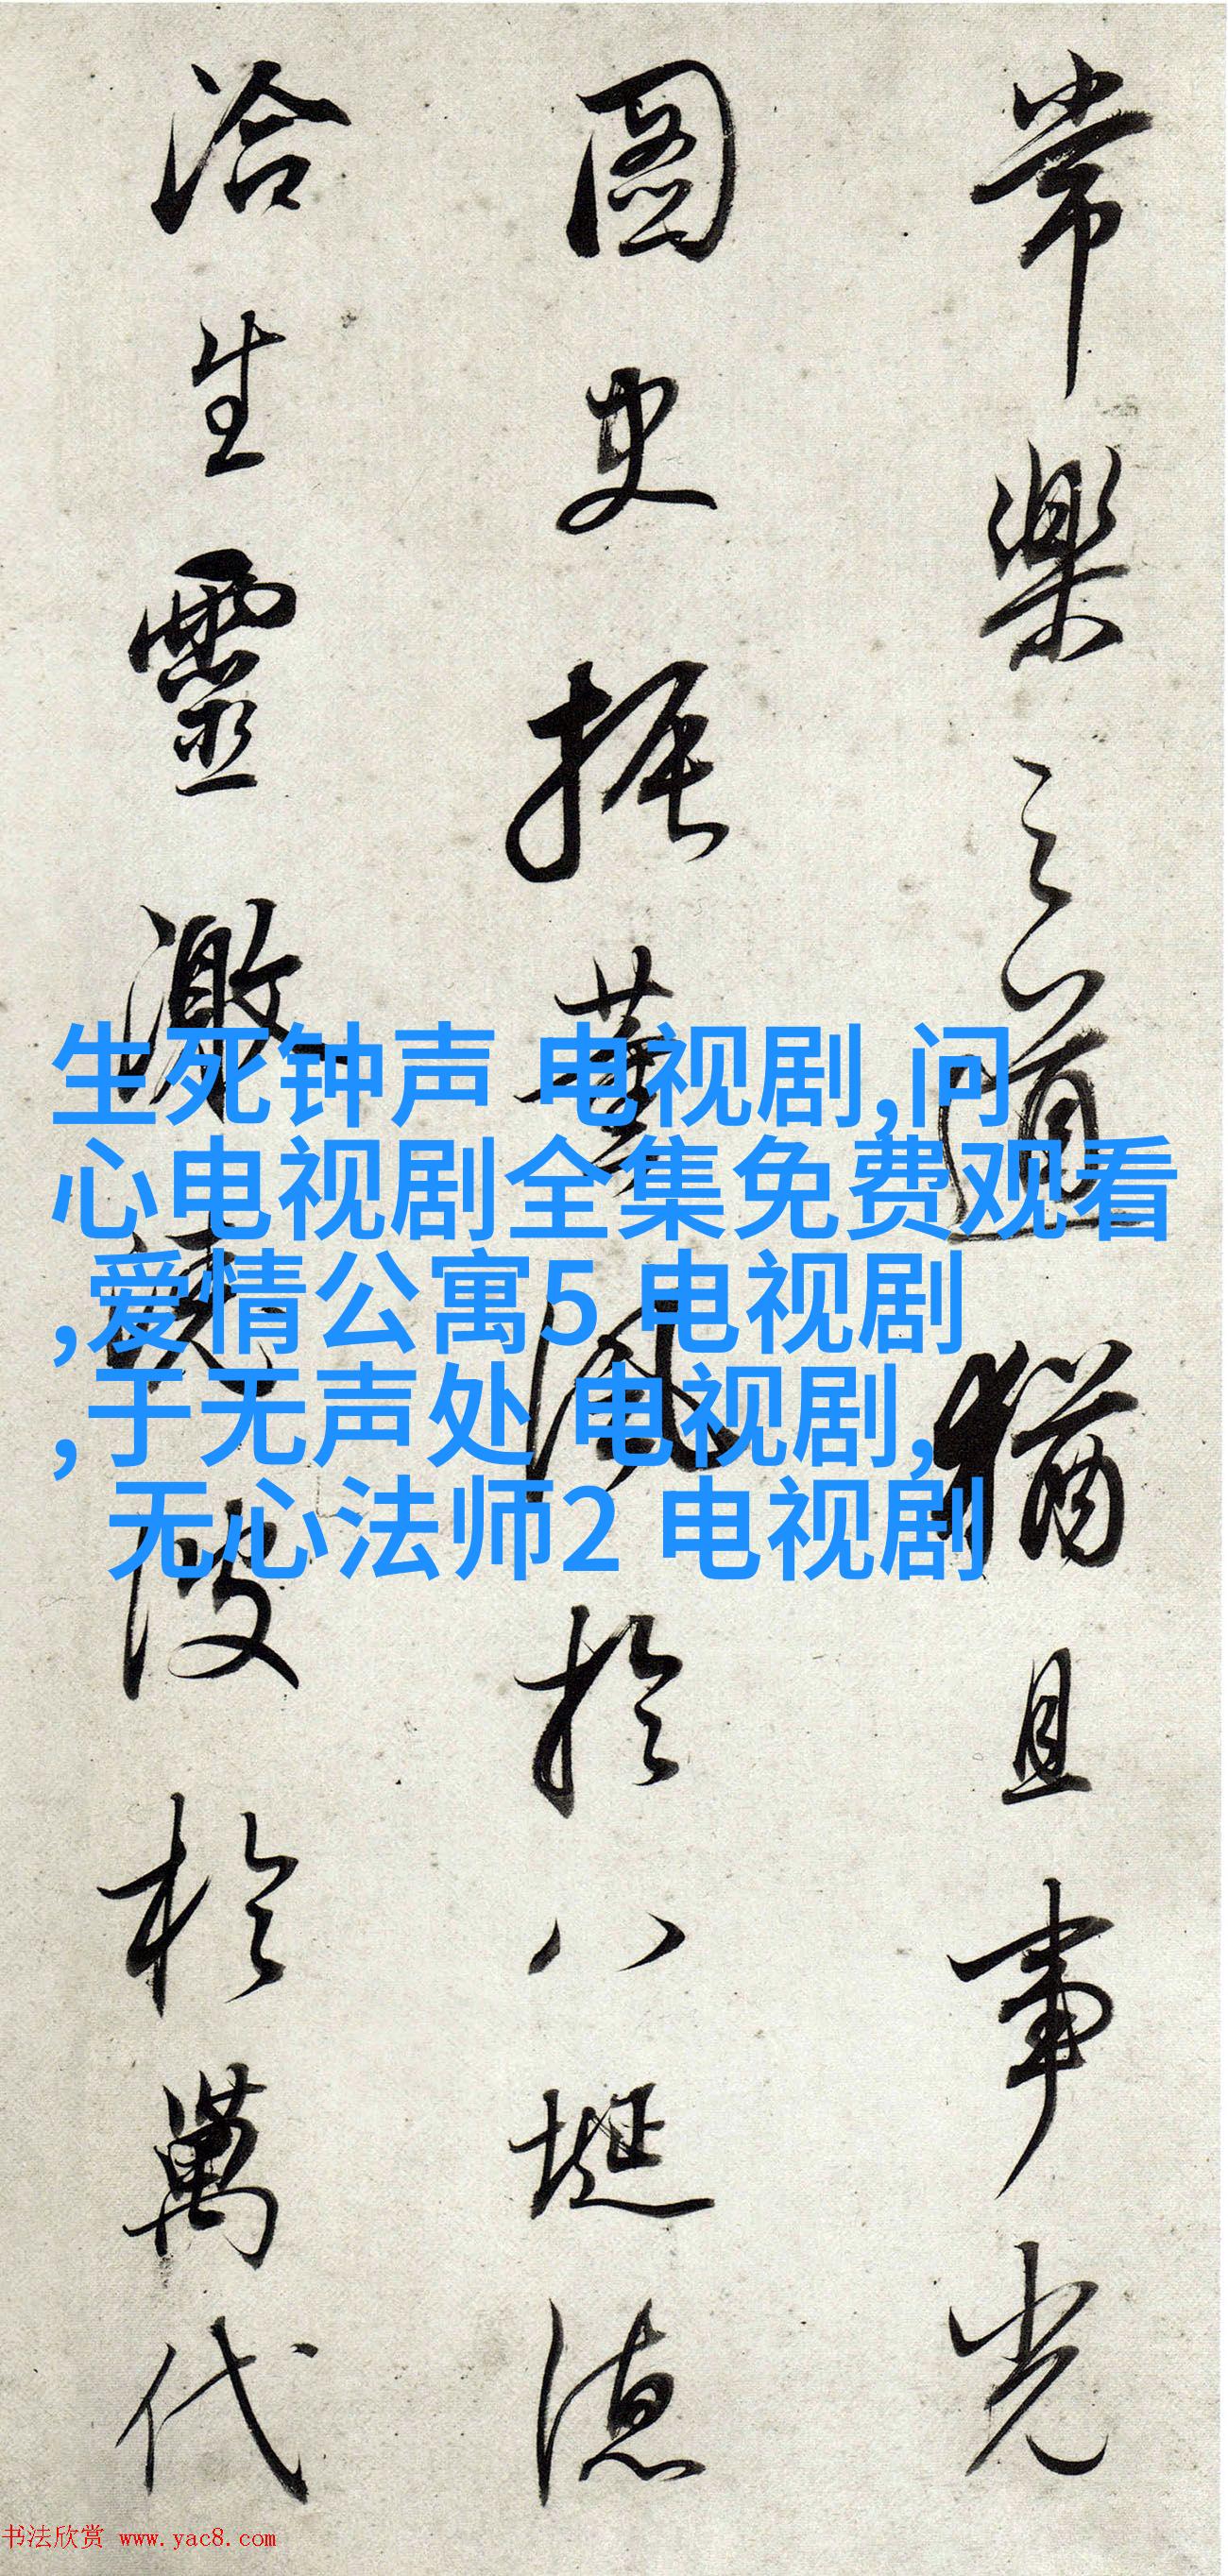 常樂之道猶且事光
圖史振薰風於八埏德
洽生靈激堯波於萬代
生死钟声 电视剧,问
心电视剧全集免费观看
,爱情公寓5 电视剧
,于无声处 电视剧,
无心法师2 电视剧
书法欣赏 www.yac8.com